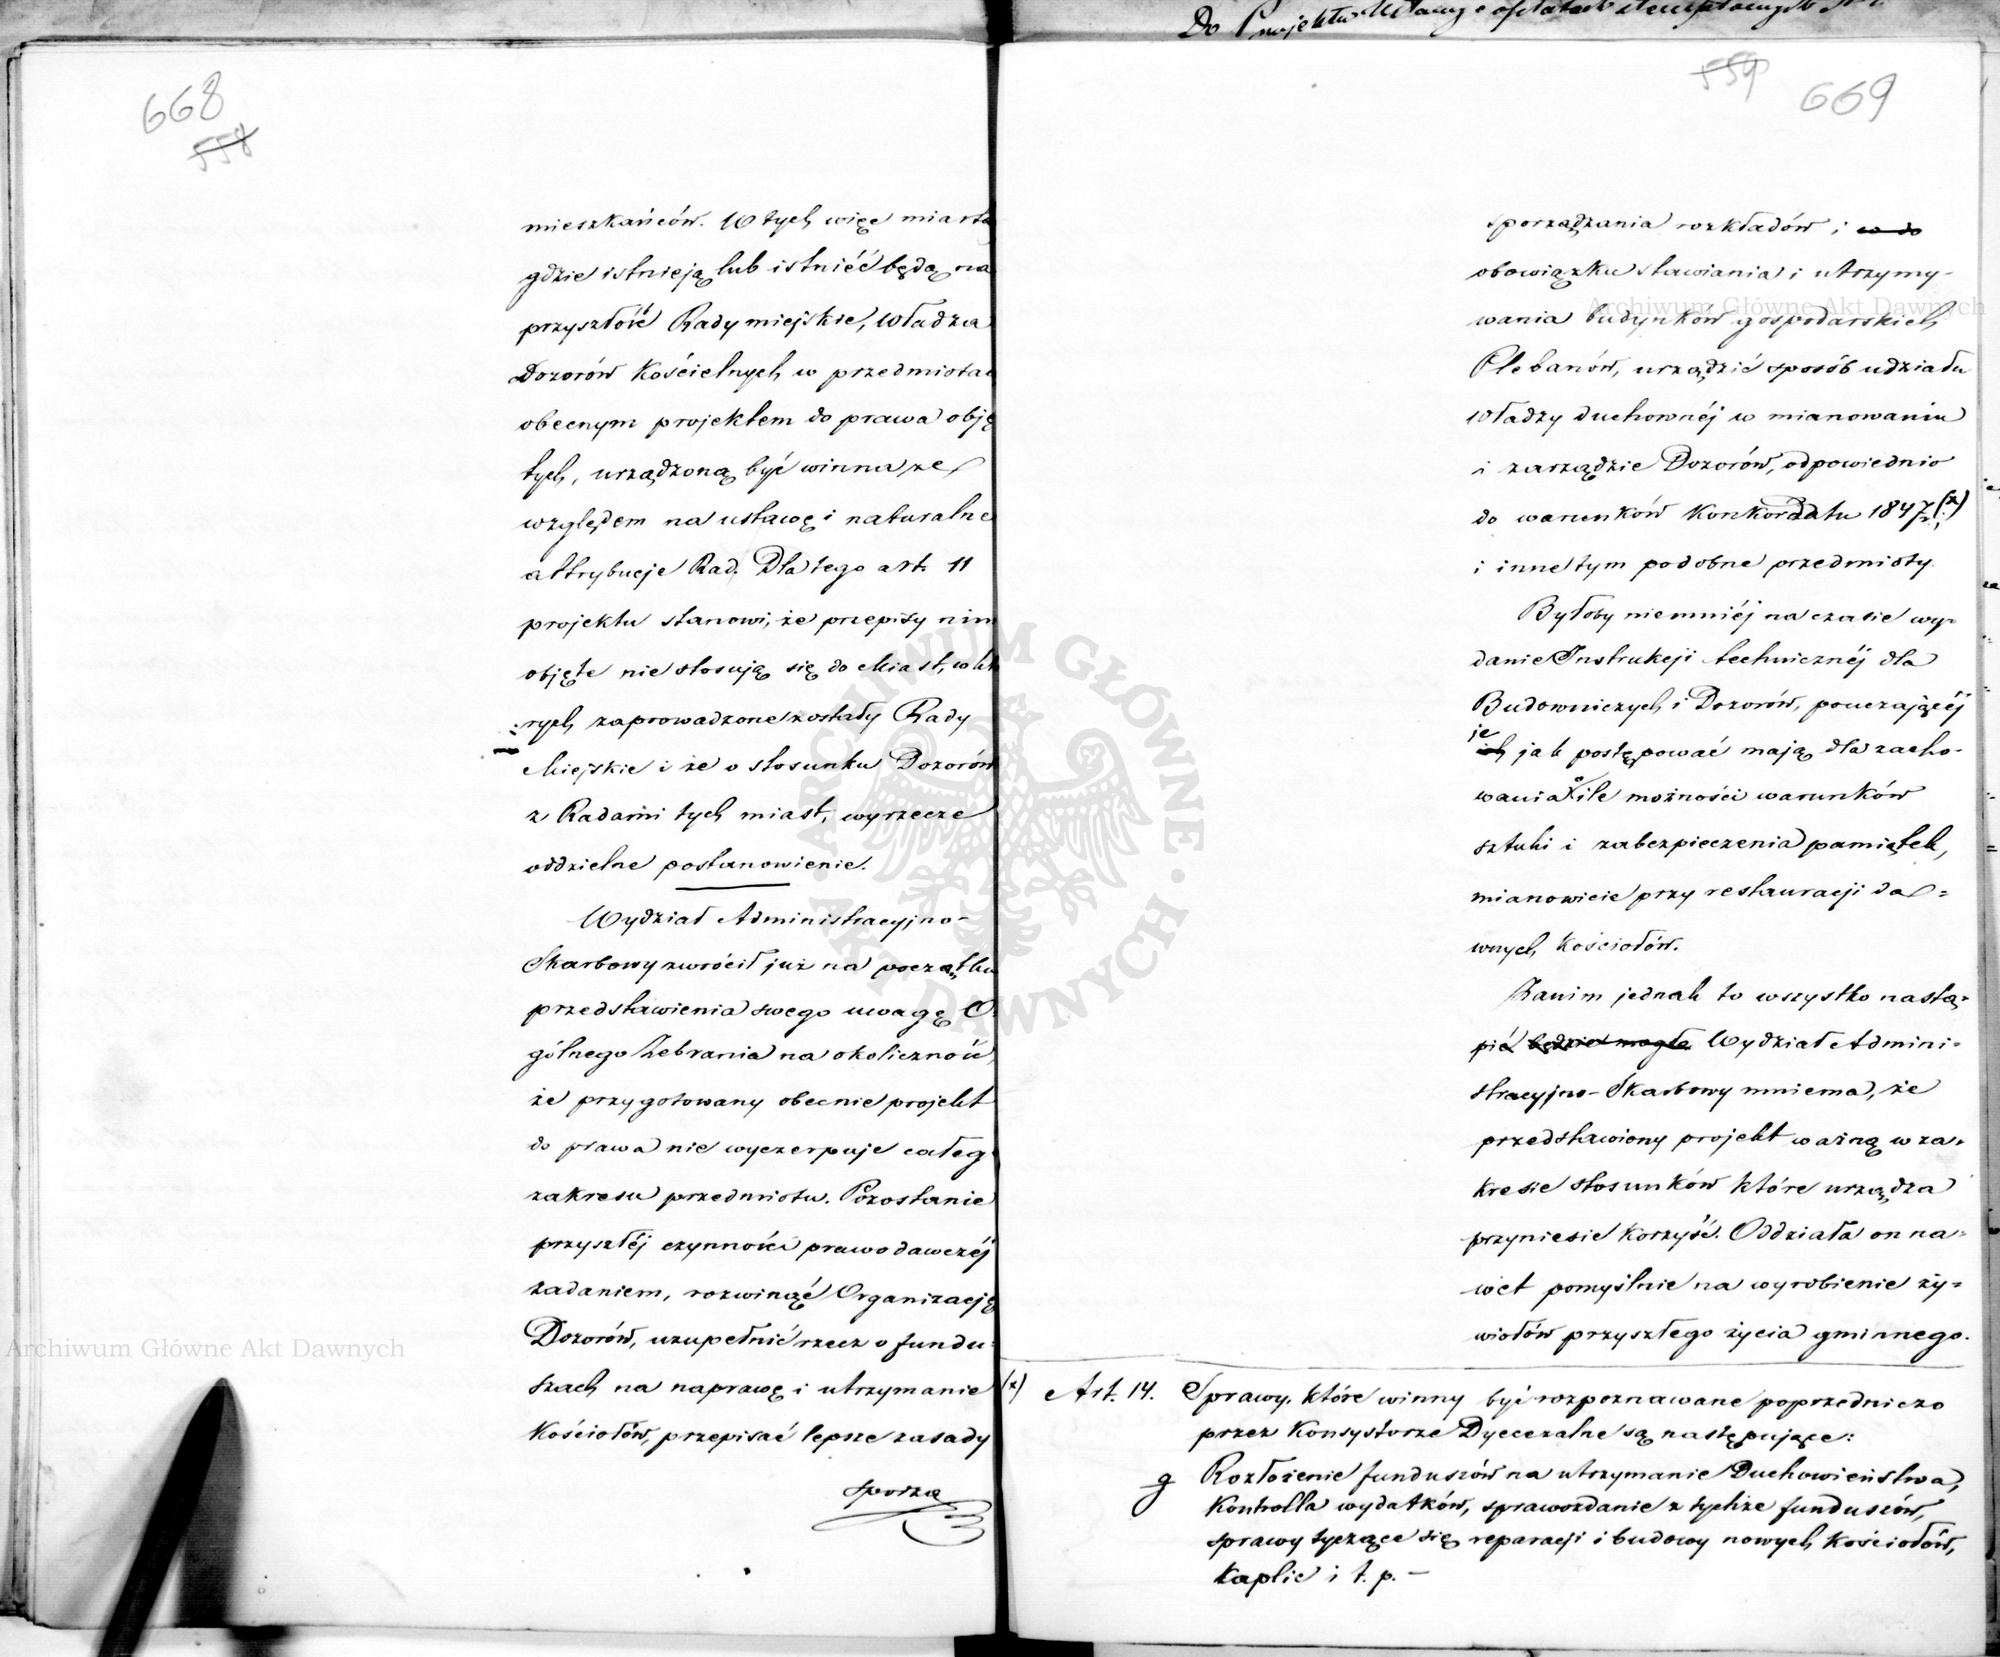 668
558
mieszkańców. W tych więc miasta
gdzie istnieją lub istnieć będą na
przyszłość Rady miejskie, władza
Dozorów Kościelnych w przedmiotac
obecnym projektem do prawa obję
tych, urządzoną być winna ze
względem na ustawę i naturalne
attrybucje Rad. Dla tego art. 11
projektu stanowi, że przepisy nim
objęte nie stosują się do Miast, w kt
rych zaprowadzone zostały Rady
Miejskie i że o stosunku Dozorów
z Radami tych miast, wyrzecze
oddzielne postanowienie.
Wydział Administracyjno-
Skarbowy zwrócił już na początku
przedstawienia swego uwagę O-
gólnego Zebrania na okoliczność,
że przygotowany obecnie projekt
do prawa nie wyczerpuje całeg
zakresu przedmiotu. Pozostanie
przyszłéj czynności prawodawczéj
zadaniem, rozwinąć Organizacją
Dozorów, uzupełnić rzecz o fundu-
szach na naprawę i utrzymanie
Kościołów, przepisać lepsze zasady
sporzą
Do Projektu Ustawy o opłatach stemplowych
559
669
sporządzania rozkładów i
obowiązku stawiania i utrzymy-
wania budynków gospodarskich
Plebanów, urządzić sposób udziału
władzy duchownéj w mianowaniu
i zarządzie Dozorów, odpowiednio
do warunków Konkordatu 1847 (x);
i inne tym podobne przedmioty.
Byłoby niemniéj na czasie wy-
danie Instrukcji technicznéj dla
Budowniczych i Dozorów, pouczającéj
je
ich jak postępować mają dla zacho-
wania o ile możności warunków
sztuki i zabezpieczenia pamiątek,
mianowicie przy restauracji da-
wnych Kościołów.
Zanim jednak to wszystko nastą-
pić będzie mogło Wydział Admini-
stracyjno-Skarbowy mniema, że
przedstawiony projekt ważną w za-
kresie stosunków które urządza
przyniesie korzyść. Oddziała on na-
wet pomyślnie na wyrobienie ży-
wiołów przyszłego życia gminnego.
(x) Art. 14. Sprawy, które winny być rozpoznawane poprzedniczo
przez Konsystorze Dyecezalne są następujące:
g Rozłożenie funduszów na utrzymanie Duchowieństwa,
Kontrolla wydatków, sprawozdanie z tychże funduszów,
sprawy tyczące się reparacji i budowy nowych Kościołów,
Kaplic i t. p. –
Archiwum Główne Akt Dawnych
Archiwum Główne Akt Dawnych
ARCHIWUM GŁÓWNE · AKT DAWNYCH ·